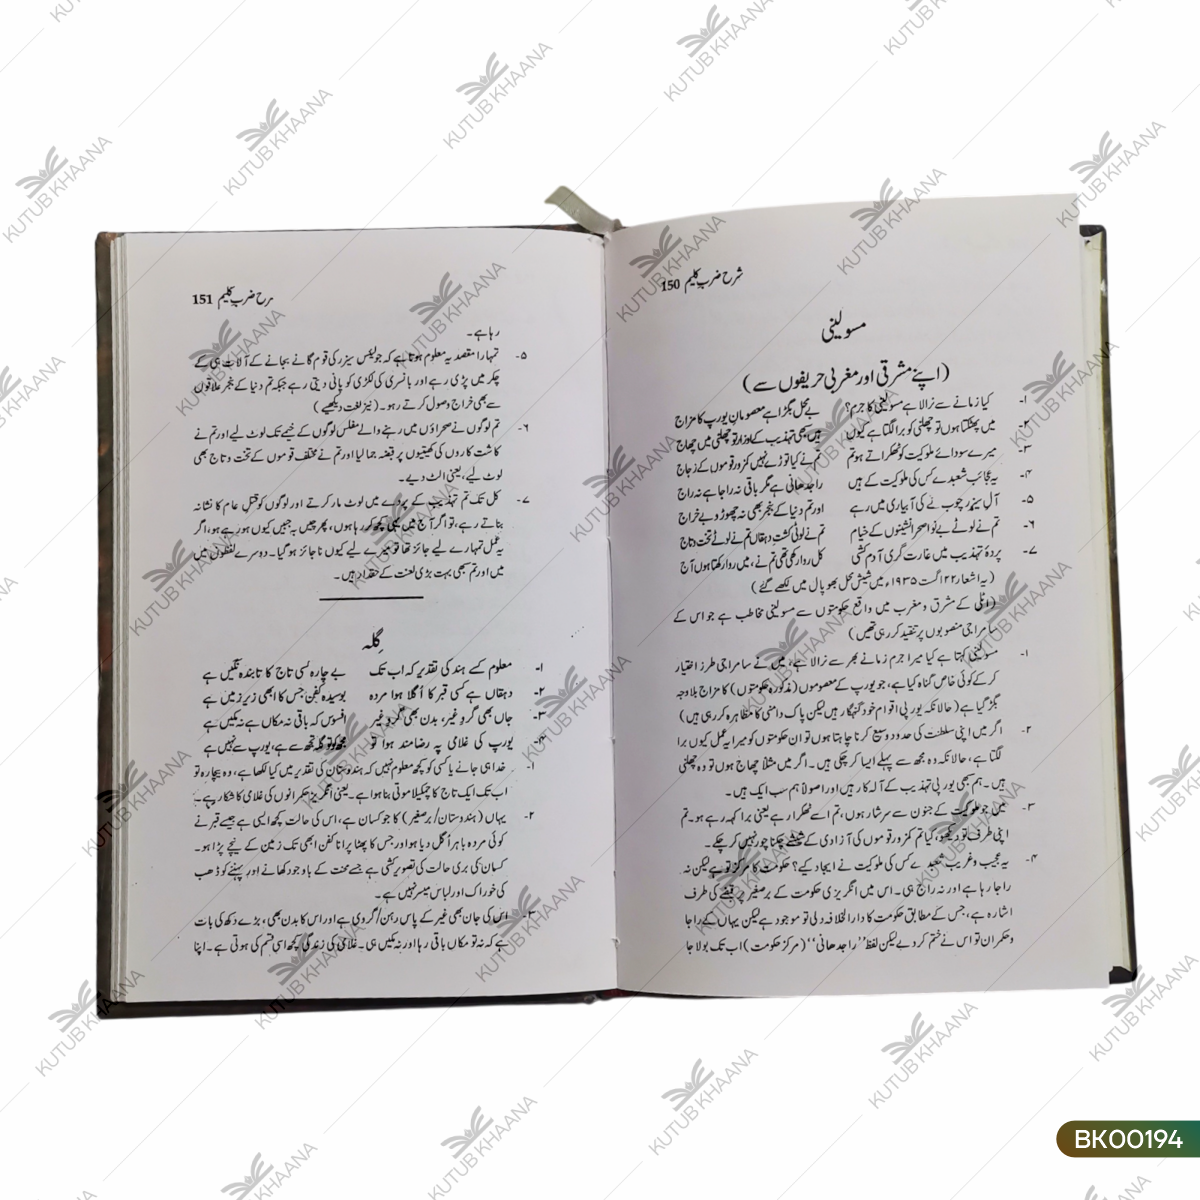 شرح ضرب کلیم 150
مسولینی
(اپنے مشرقی اور مغربی حریفوں سے)
۱- کیا زمانے سے نرالا ہے مسولینی کا جرم؟ بے محل بگڑا ہے معصومانِ یورپ کا مزاج
۲- میں پھٹکتا ہوں تو چھلنی کو برا لگتا ہے کیوں ہیں سبھی تہذیب کے اوزار تو چھلنی میں چھاج
۳- میرے سودائے ملوکیت کو ٹھکراتے ہو تم تم نے کیا توڑے نہیں کمزور قوموں کے زجاج
۴- یہ عجائب شعبدے کس کی ملوکیت کے ہیں راجدھانی ہے مگر باقی نہ راجا ہے نہ راج
۵- آلِ سیزر چوبِ نے کی آبیاری میں رہے اور تم دنیا کے بنجر بھی نہ چھوڑو بے خراج
۶- تم نے لوٹے بے نوا صحرا نشینوں کے خیام تم نے لوٹی کشتِ دہقاں تم نے لوٹے تخت و تاج
۷- پردۂ تہذیب میں غارت گری آدم کشی کل روا رکھی تھی تم نے، میں روا رکھتا ہوں آج
(یہ اشعار ۲۲ اگست ۱۹۳۵ء میں شیش محل بھوپال میں لکھے گئے)
(اٹلی کے مشرق و مغرب میں واقع حکومتوں سے مسولینی مخاطب ہے جو اس کے
سامراجی منصوبوں پر تنقید کر رہی تھیں)
۱- مسولینی کہتا ہے کیا میرا جرم زمانے بھر سے نرالا ہے، میں نے سامراجی طرز اختیار
کر کے کوئی خاص گناہ کیا ہے، جو یورپ کے معصوموں (مذکورہ حکومتوں) کا مزاج بلاوجہ
بگڑ گیا ہے (حالانکہ یورپی اقوام خود گنہگار ہیں لیکن پاک دامنی کا مظاہرہ کر رہی ہیں)
۲- اگر میں اپنی سلطنت کی حدود وسیع کرنا چاہتا ہوں تو ان حکومتوں کو میرا یہ عمل کیوں برا
لگتا ہے، حالانکہ وہ مجھ سے پہلے ایسا کر چکی ہیں۔ اگر میں مثلاً چھاج ہوں تو وہ چھلنی
ہیں۔ ہم سبھی یورپی تہذیب کے آلہ کار ہیں اور اصولاً ہم سب ایک ہیں۔
۳- میں جو ملوکیت کے جنون سے سرشار ہوں، تم اسے ٹھکرا رہے یعنی برا کہہ رہے ہو۔ تم
اپنی طرف تو دیکھو، کیا تم کمزور قوموں کی آزادی کے شیشے چکنا چور نہیں کر چکے۔
۴- یہ عجیب و غریب شعبدے کس کی ملوکیت نے ایجاد کیے؟ حکومت کا مرکز تو ہے لیکن نہ
راجا رہا ہے اور نہ راج ہی۔ اس میں انگریزی حکومت کے برصغیر پر قبضے کی طرف
اشارہ ہے، جس کے مطابق حکومت کا دارالخلافہ دلی تو موجود ہے لیکن یہاں کے راجا
و حکمران تو اس نے ختم کر دیے لیکن لفظ ''راجدھانی'' (مرکز حکومت) اب تک بولا جا
سرح ضرب کلیم 151
رہا ہے۔
۵- تمہارا مقصد یہ معلوم ہوتا ہے کہ جولیس سیزر کی قوم گانے بجانے کے آلات ہی کے
چکر میں پڑی رہے اور بانسری کی لکڑی کو پانی دیتی رہے جبکہ تم دنیا کے بنجر علاقوں
سے بھی خراج وصول کرتے رہو۔ (نیز لغت دیکھیے)
۶- تم لوگوں نے صحراؤں میں رہنے والے مفلس لوگوں کے خیمے تک لوٹ لیے اور تم نے
کاشت کاروں کی کھیتیوں پر قبضہ جما لیا اور تم نے مختلف قوموں کے تخت و تاج بھی
لوٹ لیے، یعنی الٹ دیے۔
۷- کل تک تم تہذیب کے پردے میں لوٹ مار کرتے اور لوگوں کو قتلِ عام کا نشانہ
بناتے رہے، تو اگر آج میں یہی کچھ کر رہا ہوں، پھر چیں بہ جبیں کیوں ہو رہے ہو، اگر
یہ عمل تمہارے لیے جائز تھا تو میرے لیے کیوں ناجائز ہو گیا۔ دوسرے لفظوں میں
میں اور تم سبھی بہت بڑی لعنت کے حقدار ہیں۔
گِلہ
۱- معلوم کسے ہند کی تقدیر کہ اب تک بے چارہ کسی تاج کا تابندہ نگیں ہے
۲- دہقاں ہے کسی قبر کا اُگلا ہوا مردہ بوسیدہ کفن جس کا ابھی زیرِ زمیں ہے
۳- جاں بھی گروِ غیر، بدن بھی گروِ غیر افسوس کہ باقی نہ مکاں ہے نہ مکیں ہے
۴- یورپ کی غلامی پہ رضامند ہوا تو مجھ کو تو گلہ تجھ سے ہے، یورپ سے نہیں ہے
۱- خدا ہی جانے یا کسی کو کچھ معلوم نہیں کہ ہندوستان کی تقدیر میں کیا لکھا ہے، وہ بیچارہ تو
اب تک ایک تاج کا چمکیلا موتی بنا ہوا ہے۔ یعنی انگریز حکمرانوں کی غلامی کا شکار ہے۔
۲- یہاں (ہندوستان/برصغیر) کا جو کسان ہے، اس کی حالت کچھ ایسی ہے جیسے قبر نے
کوئی مردہ باہر اُگل دیا ہو اور جس کا پھٹا پرانا کفن ابھی تک زمین کے نیچے پڑا ہو۔
کسان کی بری حالت کی تصویر کشی ہے جسے محنت کے باوجود کھانے اور پہننے کو ڈھب
کی خوراک اور لباس میسر نہیں ہے۔
۳- اس کی جان بھی غیر کے پاس رہن/گروی ہے اور اس کا بدن بھی، بڑے دکھ کی بات
ہے کہ نہ تو مکاں باقی رہا اور نہ مکیں ہی۔ غلامی کی زندگی کچھ اسی قسم کی ہوتی ہے۔ اپنا
KUTUB KHAANA
BK00194